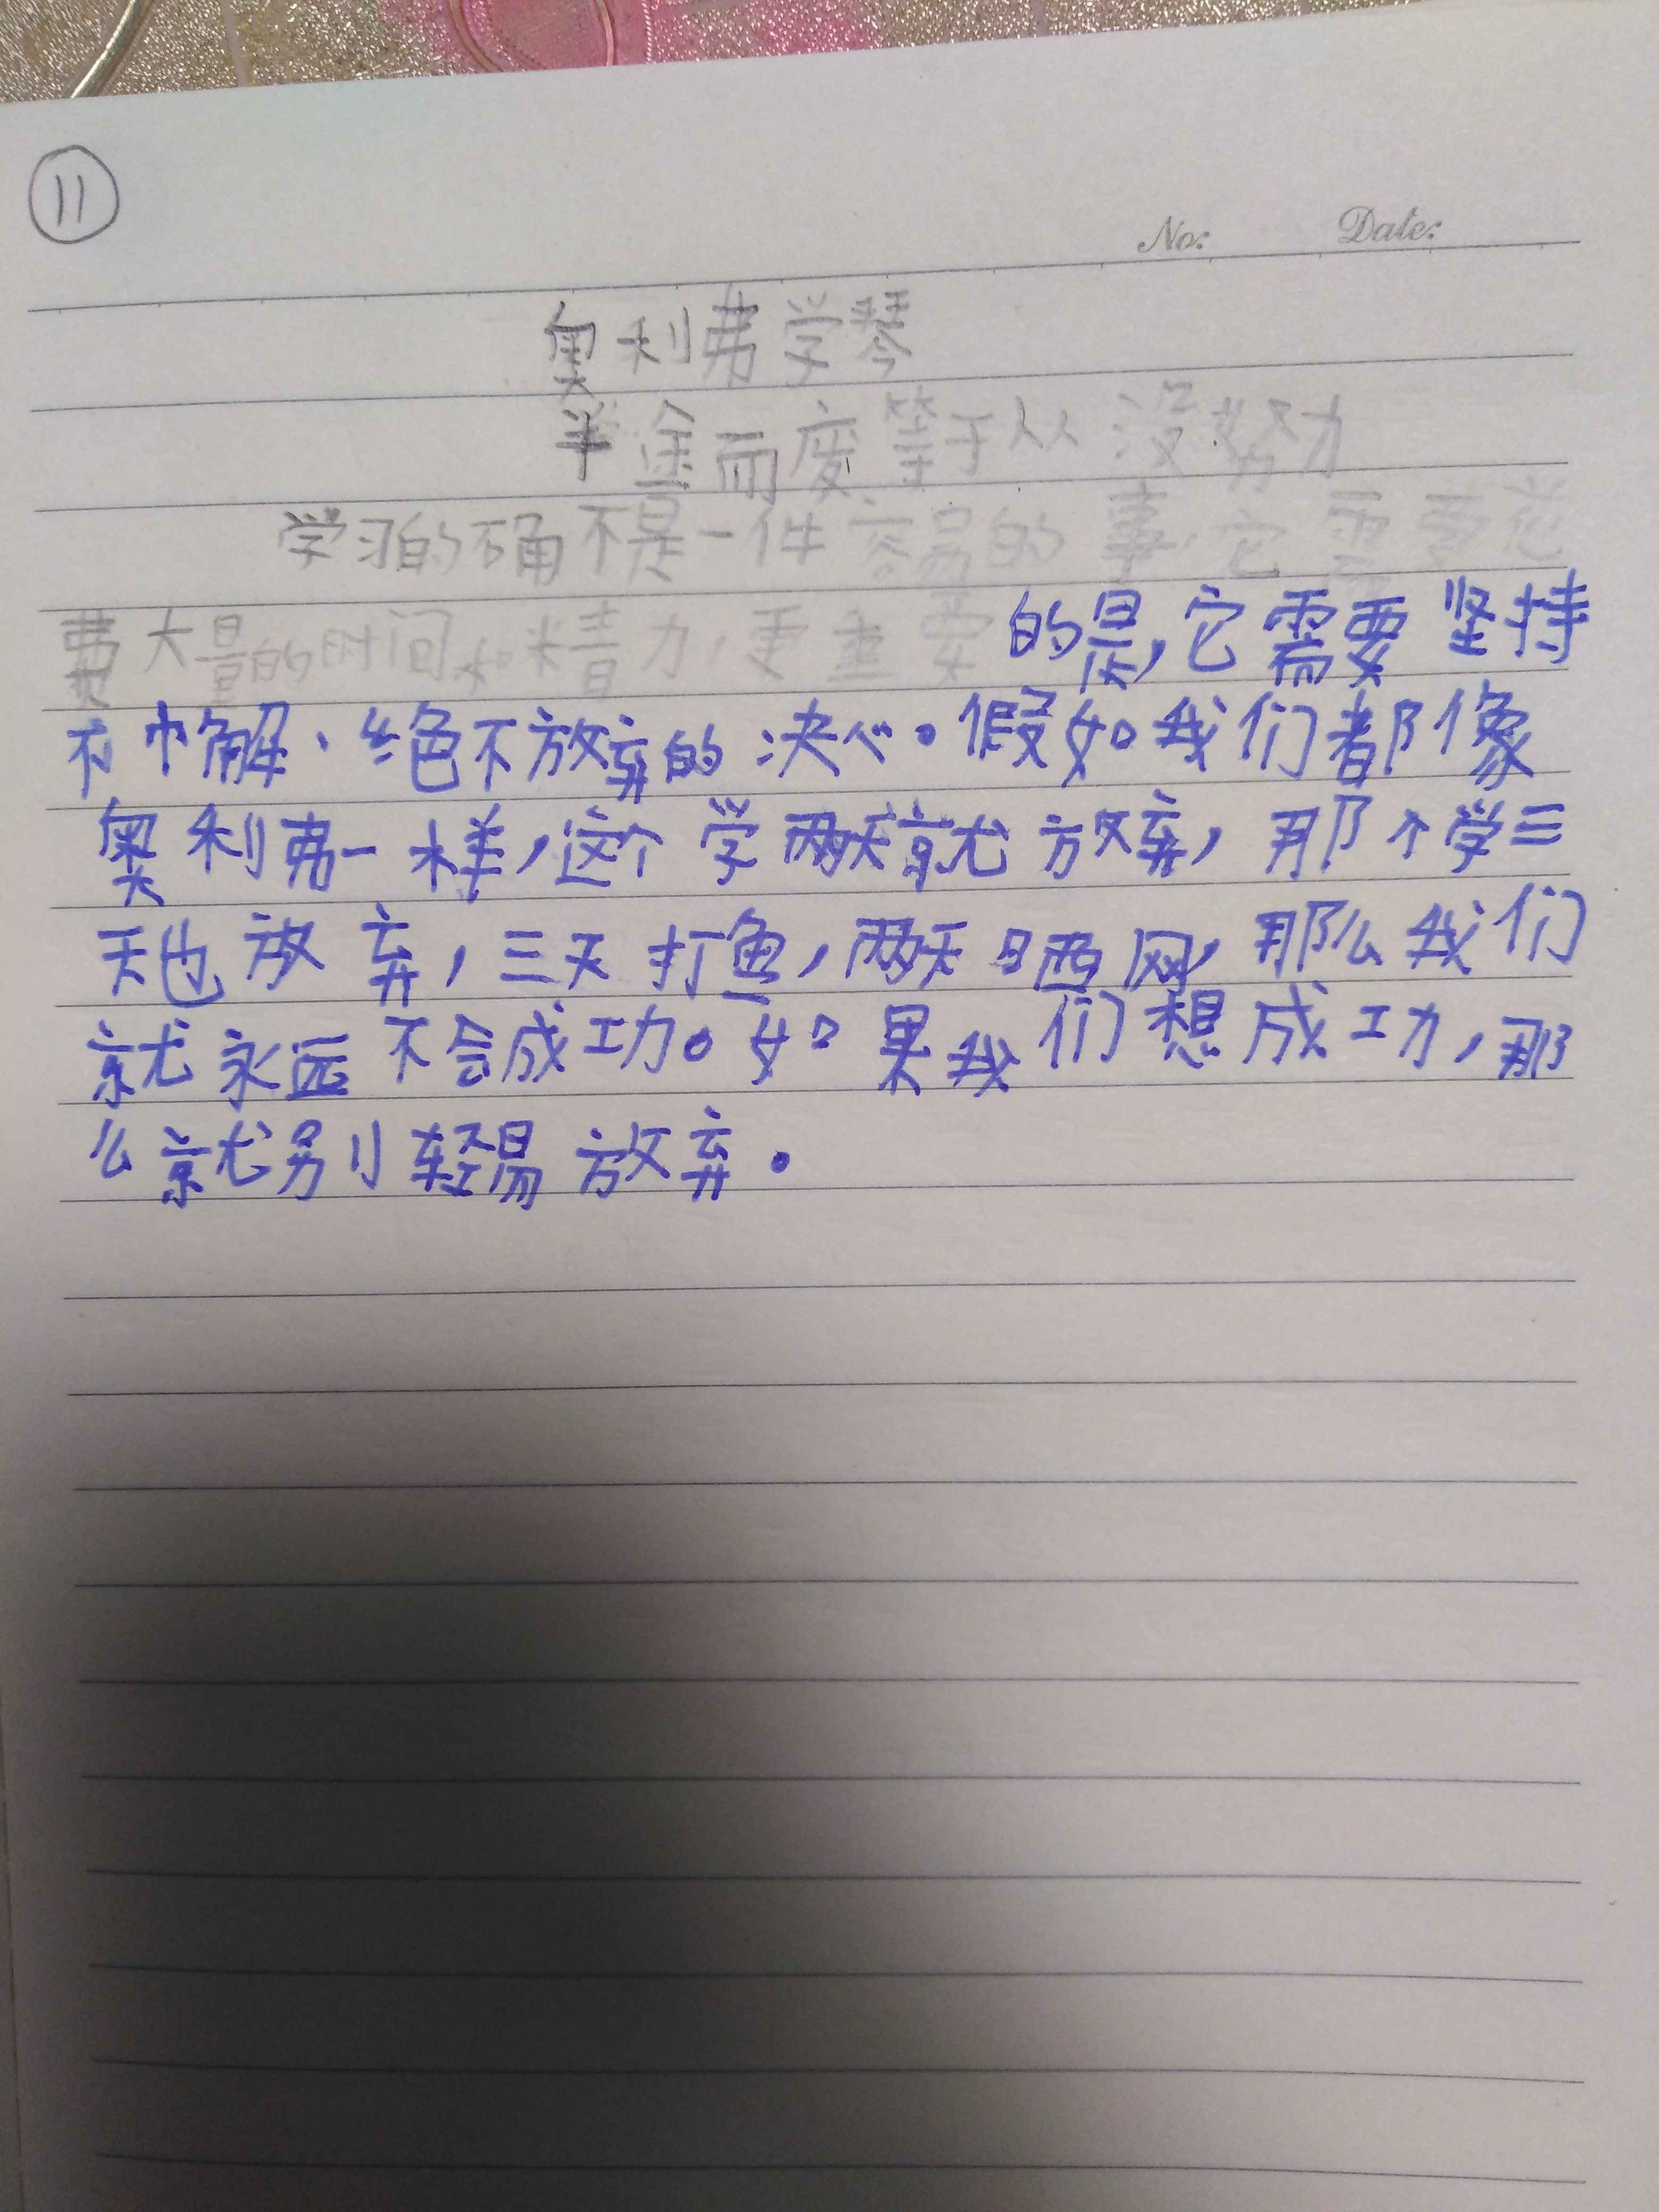 11
No: Date:
奥利弗学琴
半途而废等于从没努力
学习的确不是一件容易的事,它需要花
费大量的时间和精力,更重要的是,它需要坚持
不懈、绝不放弃的决心。假如我们都像
奥利弗一样,这个学两天就放弃,那个学三
天也放弃,三天打鱼,两天晒网,那么我们
就永远不会成功。如果我们想成功,那
么就别轻易放弃。